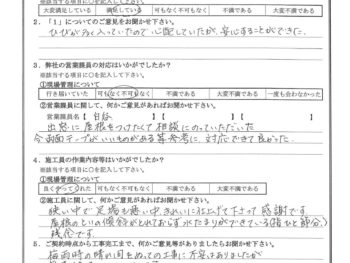 ※該当する項目に○を記入して下さい。
大変満足している 満足している 可も無く不可も無く 不満である 大変不満である
2.「1」についてのご意見をお聞かせ下さい。
ひびが多く入っていたので心配していたが、安心することができた。
3. 弊社の営業課員の対応はいかがでしたか？
※該当する項目に○を記入して下さい。
①現場管理について
行き届いていた 可もなく不可もなく 不満である 大変不満である 一度も会わなかった
②営業課員に関して、何かご意見があればお聞かせ下さい。
営業課員名【 】【 】【 】
出窓に屋根をつけたくて相談にのっていただいた
対応できて良かった
4. 施工員の作業内容等はいかがでしたか？
※該当する項目に○を記入して下さい。
①現場管理について
良くやってくれた 可もなく不可もなく 不満である 大変不満である
②施工員に関して、何かご意見があればお聞かせ下さい。
狭い中で足場も悪い中きれいに仕上げて下さって感謝です。
屋根のといの傾斜がとれておらず水たまりができている
残念です。
5. ご契約時点から工事完工まで、何かご意見等がありましたらお聞かせ下さい。
梅雨時の晴れの間をぬっての工事に不安もありましたが